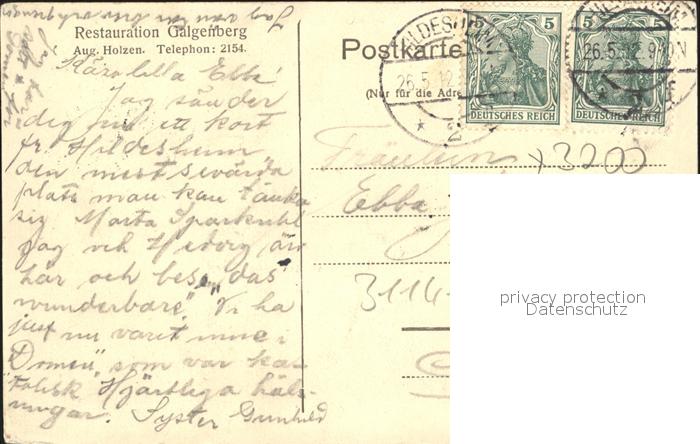 Restauration Galgenberg
Aug. Holzen. Telephon: 2154.
Postkarte
(Nur für die Adre
5 5
DEUTSCHES REICH DEUTSCHES REICH
HILDESHEIM
26.5.12
26.5.12.9-10N
* 2
Kära lilla Ebba!
Jag sänder
dig nu ett kort
fr. Hildesheim
den mest sevärda
plats man kan tänka
sig. Marta Sparkuhl
jag och Hedvig är
här och bese "das
wunderbare". Vi ha
just nu varit inne i
Domen, som var ka-
tolsk. Hjärtliga häls-
ningar. Syster Gunhild
Fräulein
x3200
Ebba
3114
privacy protection
Datenschutz